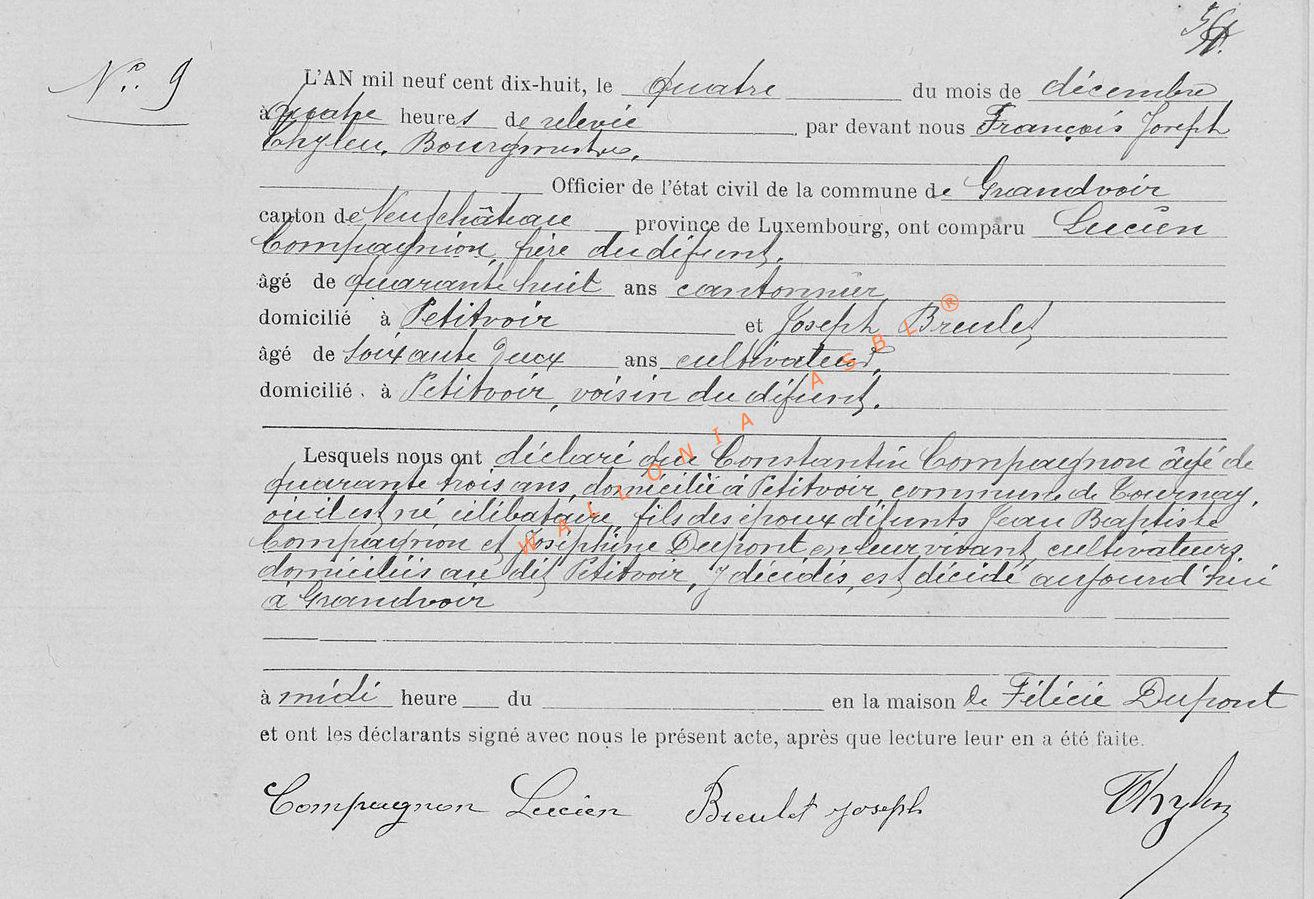 N° 9
L'AN mil neuf cent dix-huit, le quatre du mois de décembre
à quatre heures de relevée, par devant nous François Joseph
Thyleu, Bourgmestre,
Officier de l'état civil de la commune de Grandvoir
canton de Neufchâteau province de Luxembourg, ont comparu Lucien
Compagnion, frère du défunt,
âgé de quarante huit ans cantonnier
domicilié à Petitvoir et Joseph Breulet
âgé de soixante deux ans cultivateur,
domicilié à Petitvoir, voisin du défunt.
Lesquels nous ont déclaré que Constantin Compagnon âgé de
quarante trois ans, domicilié à Petitvoir, commune de Tournay,
où il est né, célibataire, fils des époux défunts Jean Baptiste
Compagnon et Joséphine Dupont en leur vivant, cultivateurs,
domiciliés au dit Petitvoir, y décédés, est décédé aujourd'hui
à Grandvoir
à midi heure du en la maison de Félicie Dupont
et ont les déclarants signé avec nous le présent acte, après que lecture leur en a été faite.
Compagnon Lucien Breulet Joseph Thyleu
WALLONIA ASBL ®